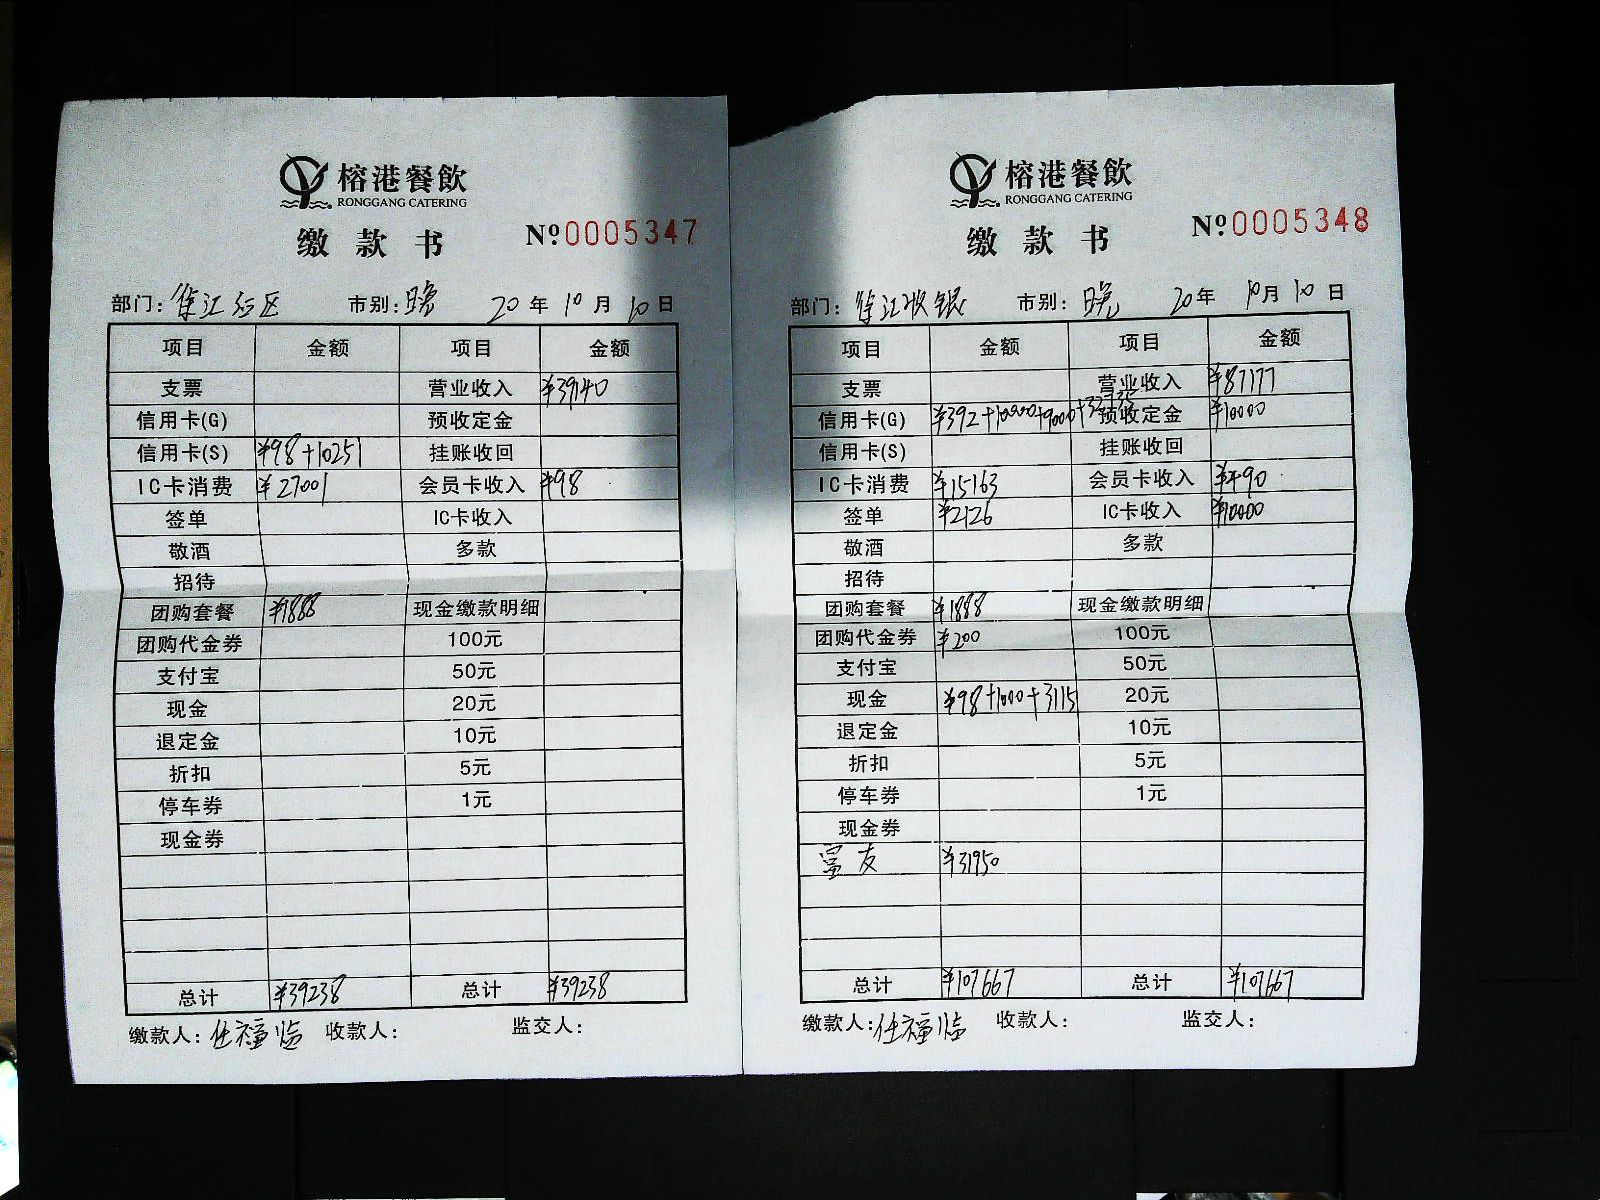 榕港餐飲
RONGGANG CATERING
缴款书
Nº0005347
部门: 市别:晚 20年10月10日
项目 金额 项目 金额
支票 营业收入 ¥39140
信用卡(G) 预收定金
信用卡(S) ¥98+10251 挂账收回
IC卡消费 ¥27001 会员卡收入 ¥98
签单 IC卡收入
敬酒 多款
招待
团购套餐 ¥1888 现金缴款明细
团购代金券 100元
支付宝 50元
现金 20元
退定金 10元
折扣 5元
停车券 1元
现金券
总计 ¥39238 总计 ¥39238
缴款人:任福临 收款人: 监交人:
榕港餐飲
RONGGANG CATERING
缴款书
Nº0005348
部门: 收银 市别:晚 20年10月10日
项目 金额 项目 金额
支票 营业收入 ¥87177
信用卡(G) ¥392+10000+9000+32735 预收定金 ¥10000
信用卡(S) 挂账收回
IC卡消费 ¥15163 会员卡收入 ¥490
签单 ¥2126 IC卡收入 ¥10000
敬酒 多款
招待
团购套餐 ¥1888 现金缴款明细
团购代金券 ¥200 100元
支付宝 50元
现金 ¥98+1000+3115 20元
退定金 10元
折扣 5元
停车券 1元
现金券
富友 ¥31950
总计 ¥107667 总计 ¥107667
缴款人:任福临 收款人: 监交人: